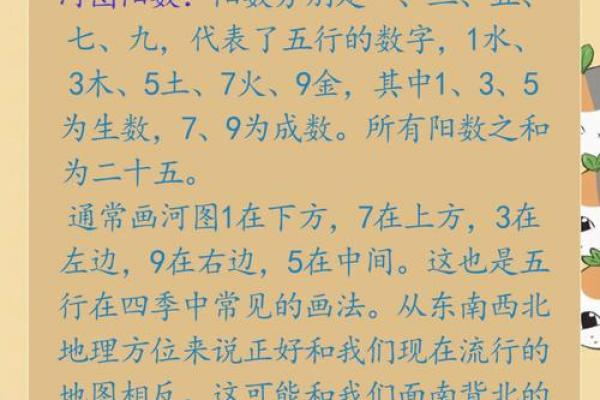 河图阳数：阳数分别是一、三、五、
七、九，代表了五行的数字，1水、
3木、5土、7火、9金，其中1、3、5
为生数，7、9为成数。所有阳数之和
为二十五。
通常画河图1在下方，7在上方，3在
左边，9在右边，5在中间。这也是五
行在四季中常见的画法。从东南西北
地理方位来说正好和我们现在流行的
地图相反。这可能和我们面南背北的